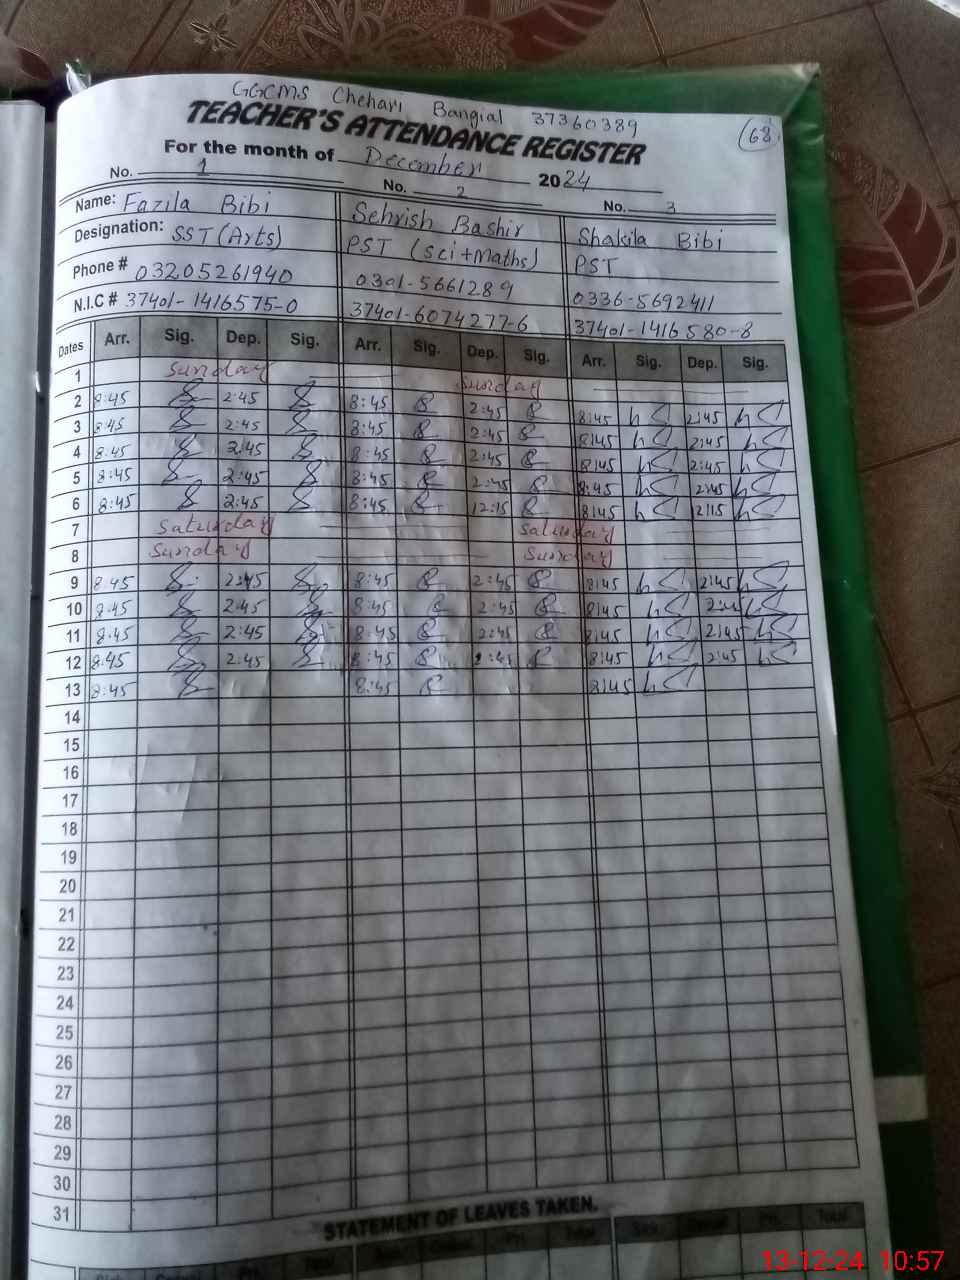 GGCMS Chehari Bangial 37360389
TEACHER'S ATTENDANCE REGISTER 68
For the month of December 2024
No. 1 No. 2 No. 3
Name: Fazila Bibi Sehrish Bashir Shakila Bibi
Designation: SST (Arts) PST (Sci+Maths) PST
Phone # 03205261940 0301-5661289 0336-5692411
N.I.C # 37401-1416575-0 37401-6074277-6 37401-1416580-8
Dates Arr. Sig. Dep. Sig. Arr. Sig. Dep. Sig. Arr. Sig. Dep. Sig.
1 Sunday Sunday
2 8:45 2:45 8:45 2:45 8:45 2:45
3 8:45 2:45 8:45 2:45 8:45 2:45
4 8:45 2:45 8:45 2:45 8:45 2:45
5 8:45 2:45 8:45 2:45 8:45 2:45
6 8:45 2:45 8:45 12:15 8:45 2:15
7 Saturday Saturday
8 Sunday Sunday
9 8:45 2:45 8:45 2:45 8:45 2:45
10 8:45 2:45 8:45 2:45 8:45
11 8:45 2:45 8:45 2:45 8:45 2:45
12 8:45 2:45 8:45 2:45 8:45 2:45
13 8:45 8:45 8:45
14
15
16
17
18
19
20
21
22
23
24
25
26
27
28
29
30
31
STATEMENT OF LEAVES TAKEN.
Total Total Sick Casual Pri. Total
13-12-24 10:57